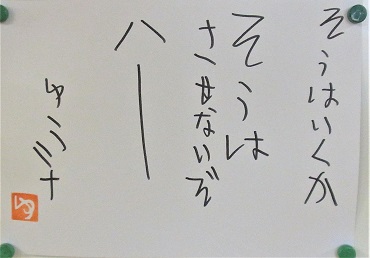 そうはいくか
そうは
させないぞ
ハー
ゆうミナ